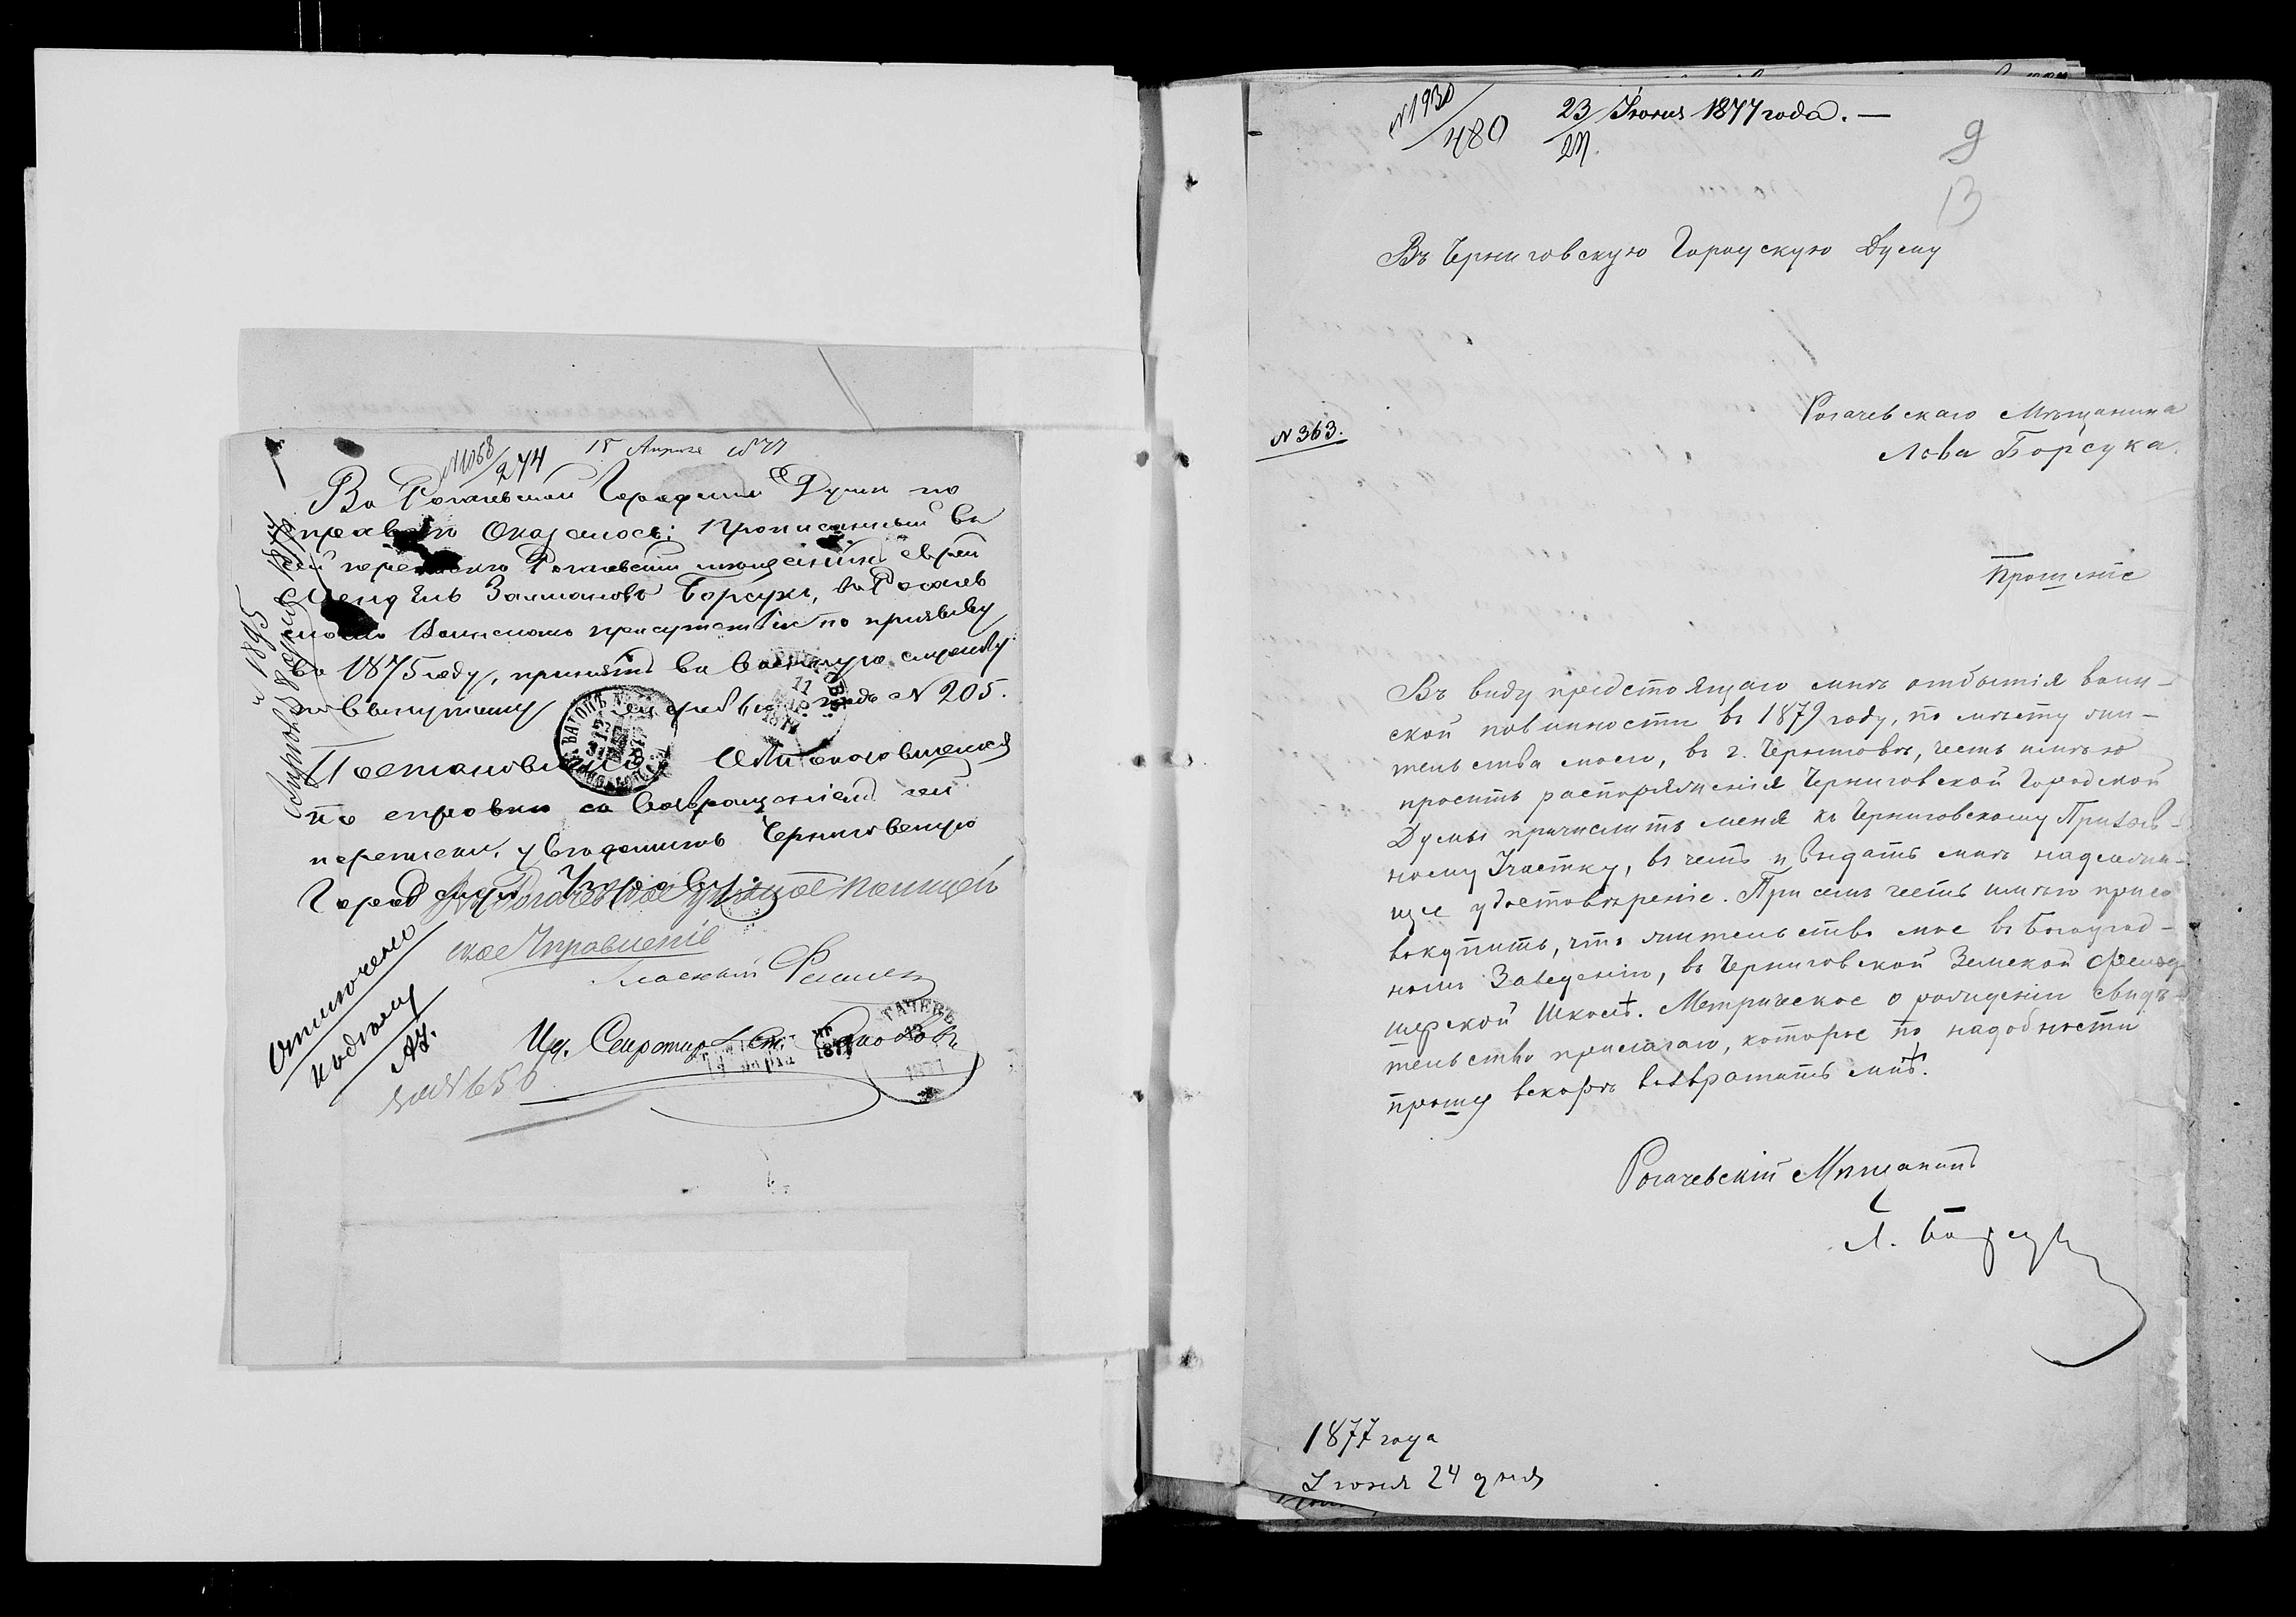 №1058/244 15 Апреля 1877
Въ Рогачевской Городской Думѣ по
справкѣ Оказалось: Прописанный въ
сей перепискѣ Рогачевскій мѣщанинъ еврей
Мендель Залмановъ Борсукъ, въ Рогачев
скомъ Воинскомъ присутствіи по призыву
въ 1875 году, принятъ въ военную службу
по вынутому жеребью подъ № 205.
Постановили: О
по справкѣ съ возвращеніемъ сей
переписки, увѣдомить Черниговскую
Городскую Управу.
Рогачевское уѣздное полицей
ское Управленіе
Гласный
Ид. Секретаря
Отмочено
АЗ.
№ 650
№ 1895
1877
ВАГОНЪ
11
1877
ГАЧЕВЪ
13
1877
№1930/480 23/27 Іюня 1877 года. —
9
13
Въ Черниговскую Городскую Думу
№ 363.
Рогачевскаго Мѣщанина
Лева Борсука.
Прошеніе
Въ виду предстоящаго мнѣ отбытія воин-
ской повинности въ 1879 году, по мѣсту жи-
тельства моего, въ г. Черниговѣ, честь имѣю
просить распоряженія Черниговской Городской
Думы причислить меня къ Черниговскому Призыв-
ному Участку, въ чемъ и выдать мнѣ надлежа-
щее удостовѣреніе. При семъ честь имѣю присо
вокупить, что жительство мое въ Богоугод-
номъ Заведеніи, въ Черниговской Земской Фельд
шерской Школѣ. Метрическое о рожденіи свидѣ-
тельство прилагаю, которое по надобности
прошу вскорѣ возвратить мнѣ.
Рогачевскій Мѣщанинъ
Л. Борсукъ
1877 года
Іюня 24 дня